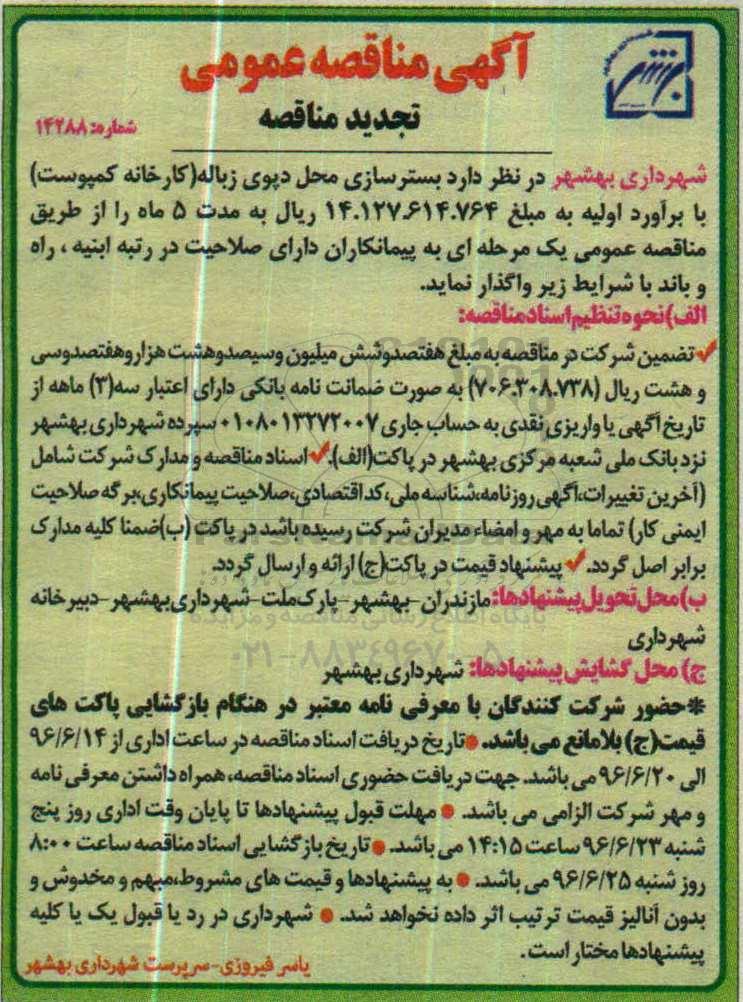 آگهی مناقصه عمومی
تجدید مناقصه
شماره: ۱۴۲۸۸
شهرداری بهشهر در نظر دارد بسترسازی محل دپوی زباله(کارخانه کمپوست)
با برآورد اولیه به مبلغ ۱۴.۱۲۷.۶۱۴.۷۶۴ ریال به مدت ۵ ماه را از طریق
مناقصه عمومی یک مرحله ای به پیمانکاران دارای صلاحیت در رتبه ابنیه ، راه
و باند با شرایط زیر واگذار نماید.
الف)نحوه تنظیم اسناد مناقصه:
✓تضمین شرکت در مناقصه به مبلغ هفتصدوشش میلیون وسیصدوهشت هزاروهفتصدوسی
و هشت ریال (۷۰۶.۳۰۸.۷۳۸) به صورت ضمانت نامه بانکی دارای اعتبار سه(۳) ماهه از
تاریخ آگهی یا واریزی نقدی به حساب جاری ۰۱۰۸۰۱۳۲۷۲۰۰۷ سپرده شهرداری بهشهر
نزد بانک ملی شعبه مرکزی بهشهر در پاکت(الف).✓اسناد مناقصه و مدارک شرکت شامل
(آخرین تغییرات،آگهی روزنامه،شناسه ملی،کد اقتصادی،صلاحیت پیمانکاری،برگه صلاحیت
ایمنی کار) تماما به مهر و امضاء مدیران شرکت رسیده باشد در پاکت (ب)ضمنا کلیه مدارک
برابر اصل گردد.✓پیشنهاد قیمت در پاکت(ج) ارائه و ارسال گردد.
ب)محل تحویل پیشنهادها:مازندران-بهشهر-پارک ملت-شهرداری بهشهر-دبیرخانه
شهرداری
پایگاه اطلاع رسانی مناقصه و مزایده
۰۲۱-۸۸۳۴۹۶۷۰-۵
ج) محل گشایش پیشنهادها: شهرداری بهشهر
*حضور شرکت کنندگان با معرفی نامه معتبر در هنگام بازگشایی پاکت های
قیمت(ج) بلامانع می باشد.●تاریخ دریافت اسناد مناقصه در ساعت اداری از ۹۶/۶/۱۴
الی ۹۶/۶/۲۰ می باشد. جهت دریافت حضوری اسناد مناقصه، همراه داشتن معرفی نامه
و مهر شرکت الزامی می باشد. ● مهلت قبول پیشنهادها تا پایان وقت اداری روز پنج
شنبه ۹۶/۶/۲۳ ساعت ۱۴:۱۵ می باشد.●تاریخ بازگشایی اسناد مناقصه ساعت ۸:۰۰
روز شنبه ۹۶/۶/۲۵ می باشد. ● به پیشنهادها و قیمت های مشروط،مبهم و مخدوش و
بدون آنالیز قیمت ترتیب اثر داده نخواهد شد. ● شهرداری در رد یا قبول یک یا کلیه
پیشنهادها مختار است.
یاسر فیروزی-سرپرست شهرداری بهشهر